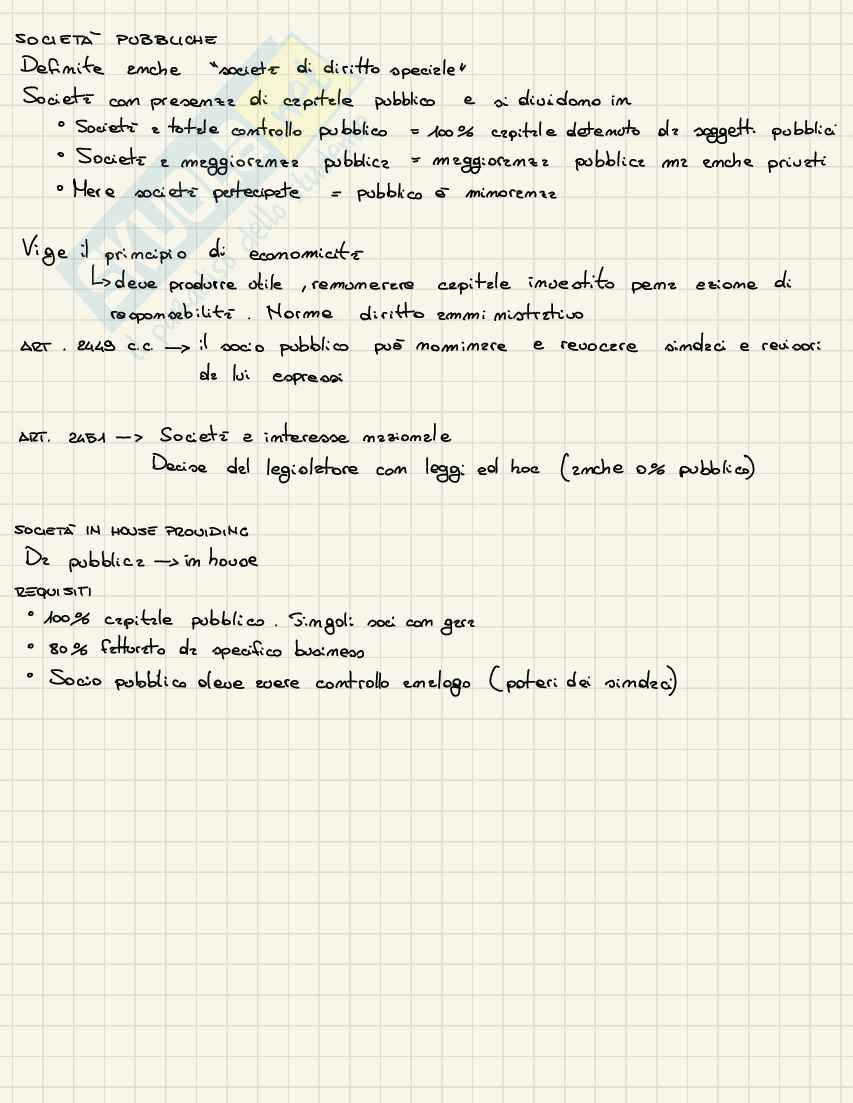 SOCIETÀ PUBBLICHE
Definite anche "società di diritto speciale"
Società con presenza di capitale pubblico e si dividono in
• Società a totale controllo pubblico = 100% capitale detenuto da soggetti pubblici
• Società a maggioranza pubblica = maggioranza pubblica ma anche privati
• Mere società partecipate = pubblico è minoranza
Vige il principio di economicità
↳ deve produrre utile, remunerare capitale investito pena azione di
responsabilità. Norme diritto amministrativo
ART. 2449 c.c. → il socio pubblico può nominare e revocare sindaci e revisori
da lui espressi
ART. 2451 → Società a interesse nazionale
Decise dal legislatore con leggi ad hoc (anche 0% pubblico)
SOCIETÀ IN HOUSE PROVIDING
Da pubblica → in house
REQUISITI
• 100% capitale pubblico. Singoli soci con gara
• 80% fatturato da specifico business
• Socio pubblico deve avere controllo analogo (poteri dei sindaci)
SKUOLA.net
il paradiso dello studente